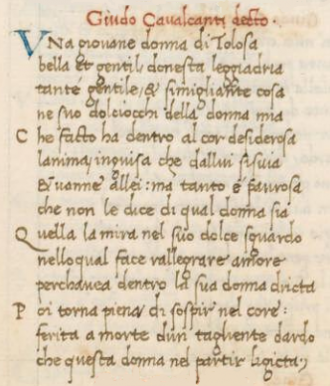 Giudo Cavalcanti decto.
VNa giouane donna di Tolosa
bella et gentil, donesta leggiadria
tante gentile, & simigliante cosa
ne suo dolciocchi della donna mia
C he facto ha dentro al cor desiderosa
lanima, inguisa che dallui si suia
& uanne allei: ma tanto e paurosa
che non le dice di qual donna sia
Q uella la mira nel suo dolce sguardo
nelloqual face rallegrare amore
perchauea dentro la sua donna dricta
P oi torna piena di sospir nel core:
ferita a morte dun tagliente dardo
che questa donna nel partir li gicta;